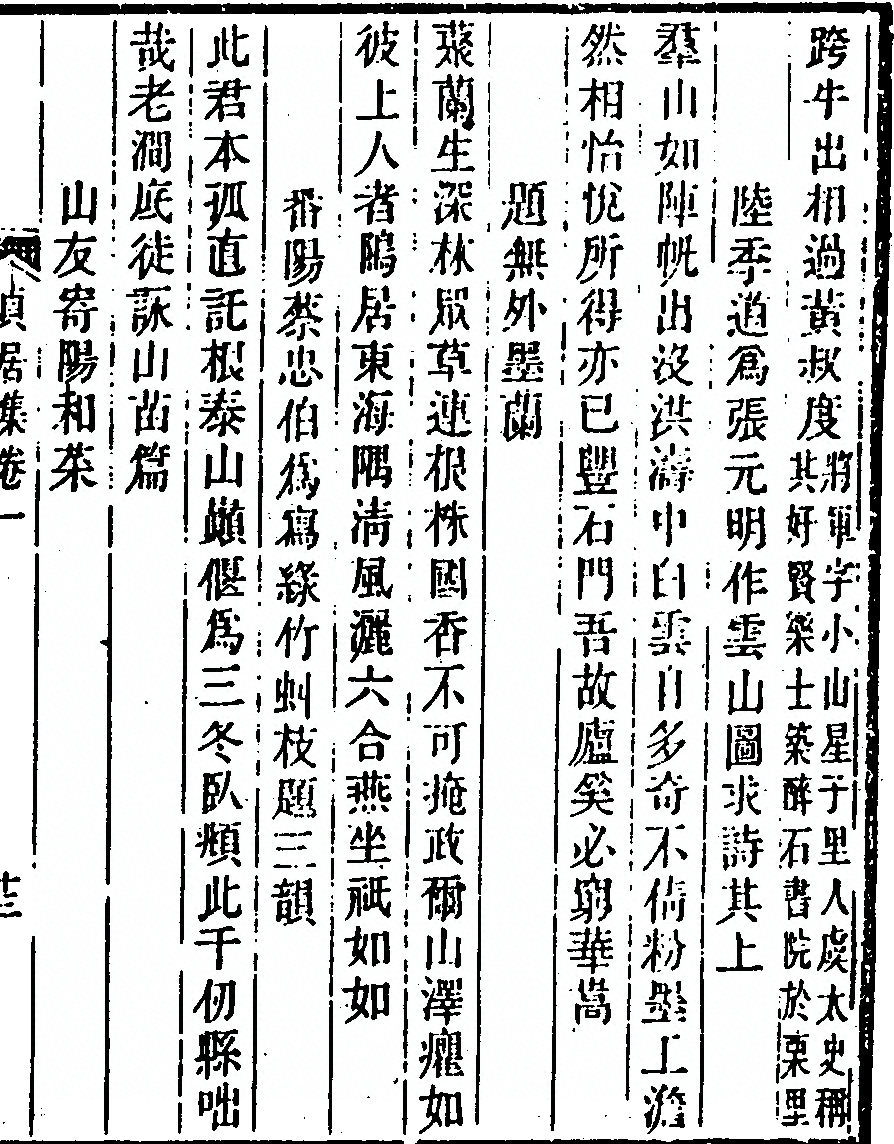 跨牛出相過黃叔度將軍字小山星子里人虞太史稱
其好賢樂士築醉石書院於栗里
陸季道爲張元明作雲山圖求詩其上
羣山如陣帆出沒洪濤中白雲自多奇不倩粉墨工澹
然相怡悅所得亦已豐石門吾故廬奚必窮華嵩
題無外墨蘭
叢蘭生深林眾草連根株國香不可掩政爾山澤癯如
彼上人者隝居東海隅淸風灑六合燕坐祇如如
番陽蔡忠伯爲寫綠竹虯枝題三韻
此君本孤直託根泰山巔偃爲三冬臥頫此千仞縣咄
哉老澗底徒詠山苗篇
山友寄陽和茶
貞居集卷一
十三